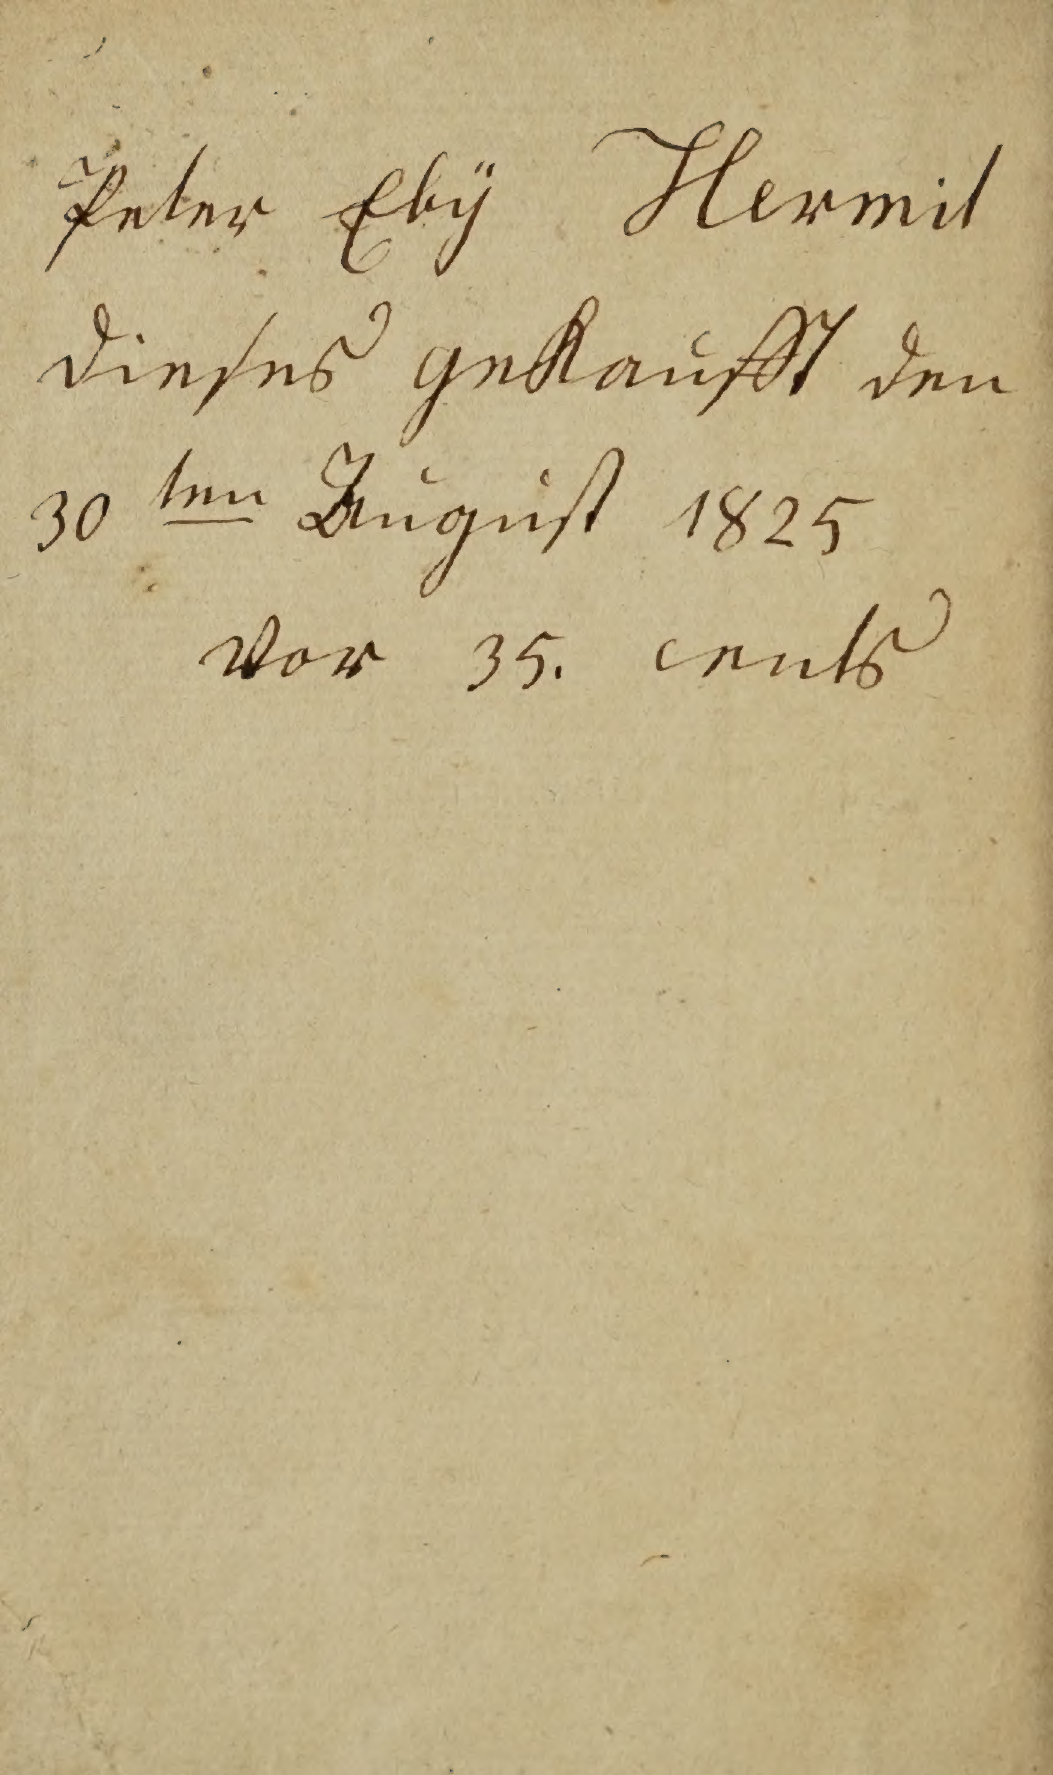 Peter Ebÿ Hermit
dieses gekaufft den
30 ten August 1825
vor 35. cents